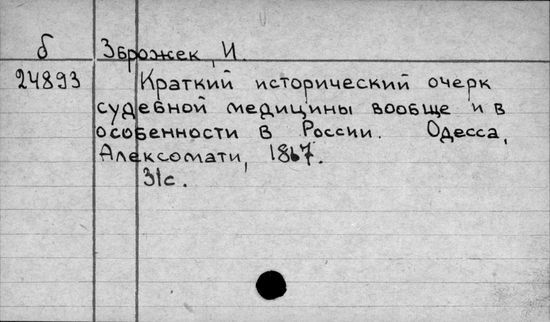 б
24893
Зброжек, И.
Краткий исторический очерк
судебной медицины вообще и в
особенности в России. Одесса,
Алексомати, 1867.
31с.